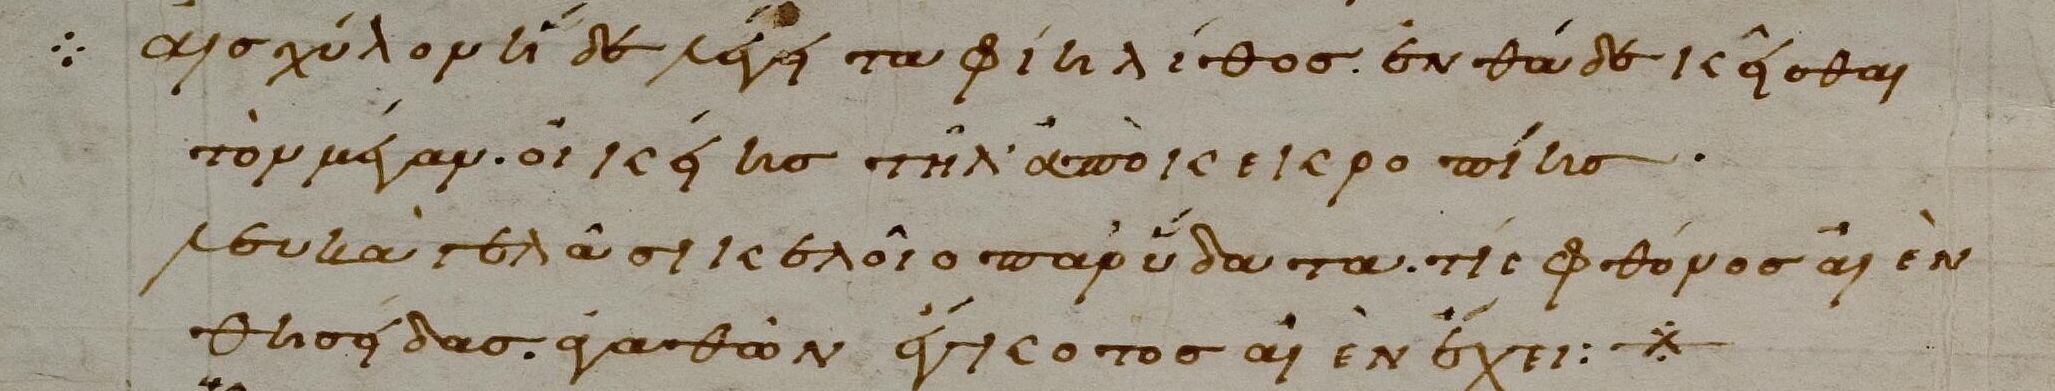 αἰσχύλον ἥδε λέγει ταφίη λίθος. ἐνθάδε κεῖσθαι
τὸν μέγαν. οἰκείης τῆλ' ἀπὸ κεκροπίης.
λευκὰ γέλᾶ σικελοῖο παρ ὕδατα. τίς φθόνος αἰὲν
θησείδας. ἀγαθῶν ἔγκοτος αἰὲν ἔχει: